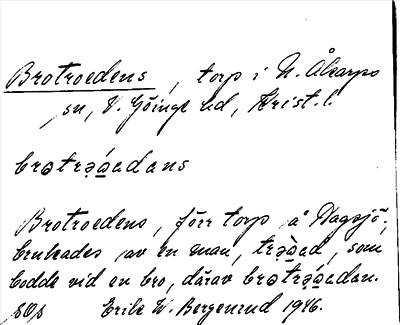 Brotroedens, torp i N. Åkarps
sn, V. Göinge hd, Krist. l.
brotrǫ́ædans
Brotroedens, förr torp å Hagsjö,
brukades av en man, trǫ̀æd, som
bodde vid en bro, därav brotrǫ́ædan.
Erik W. Bergenrud 1946.